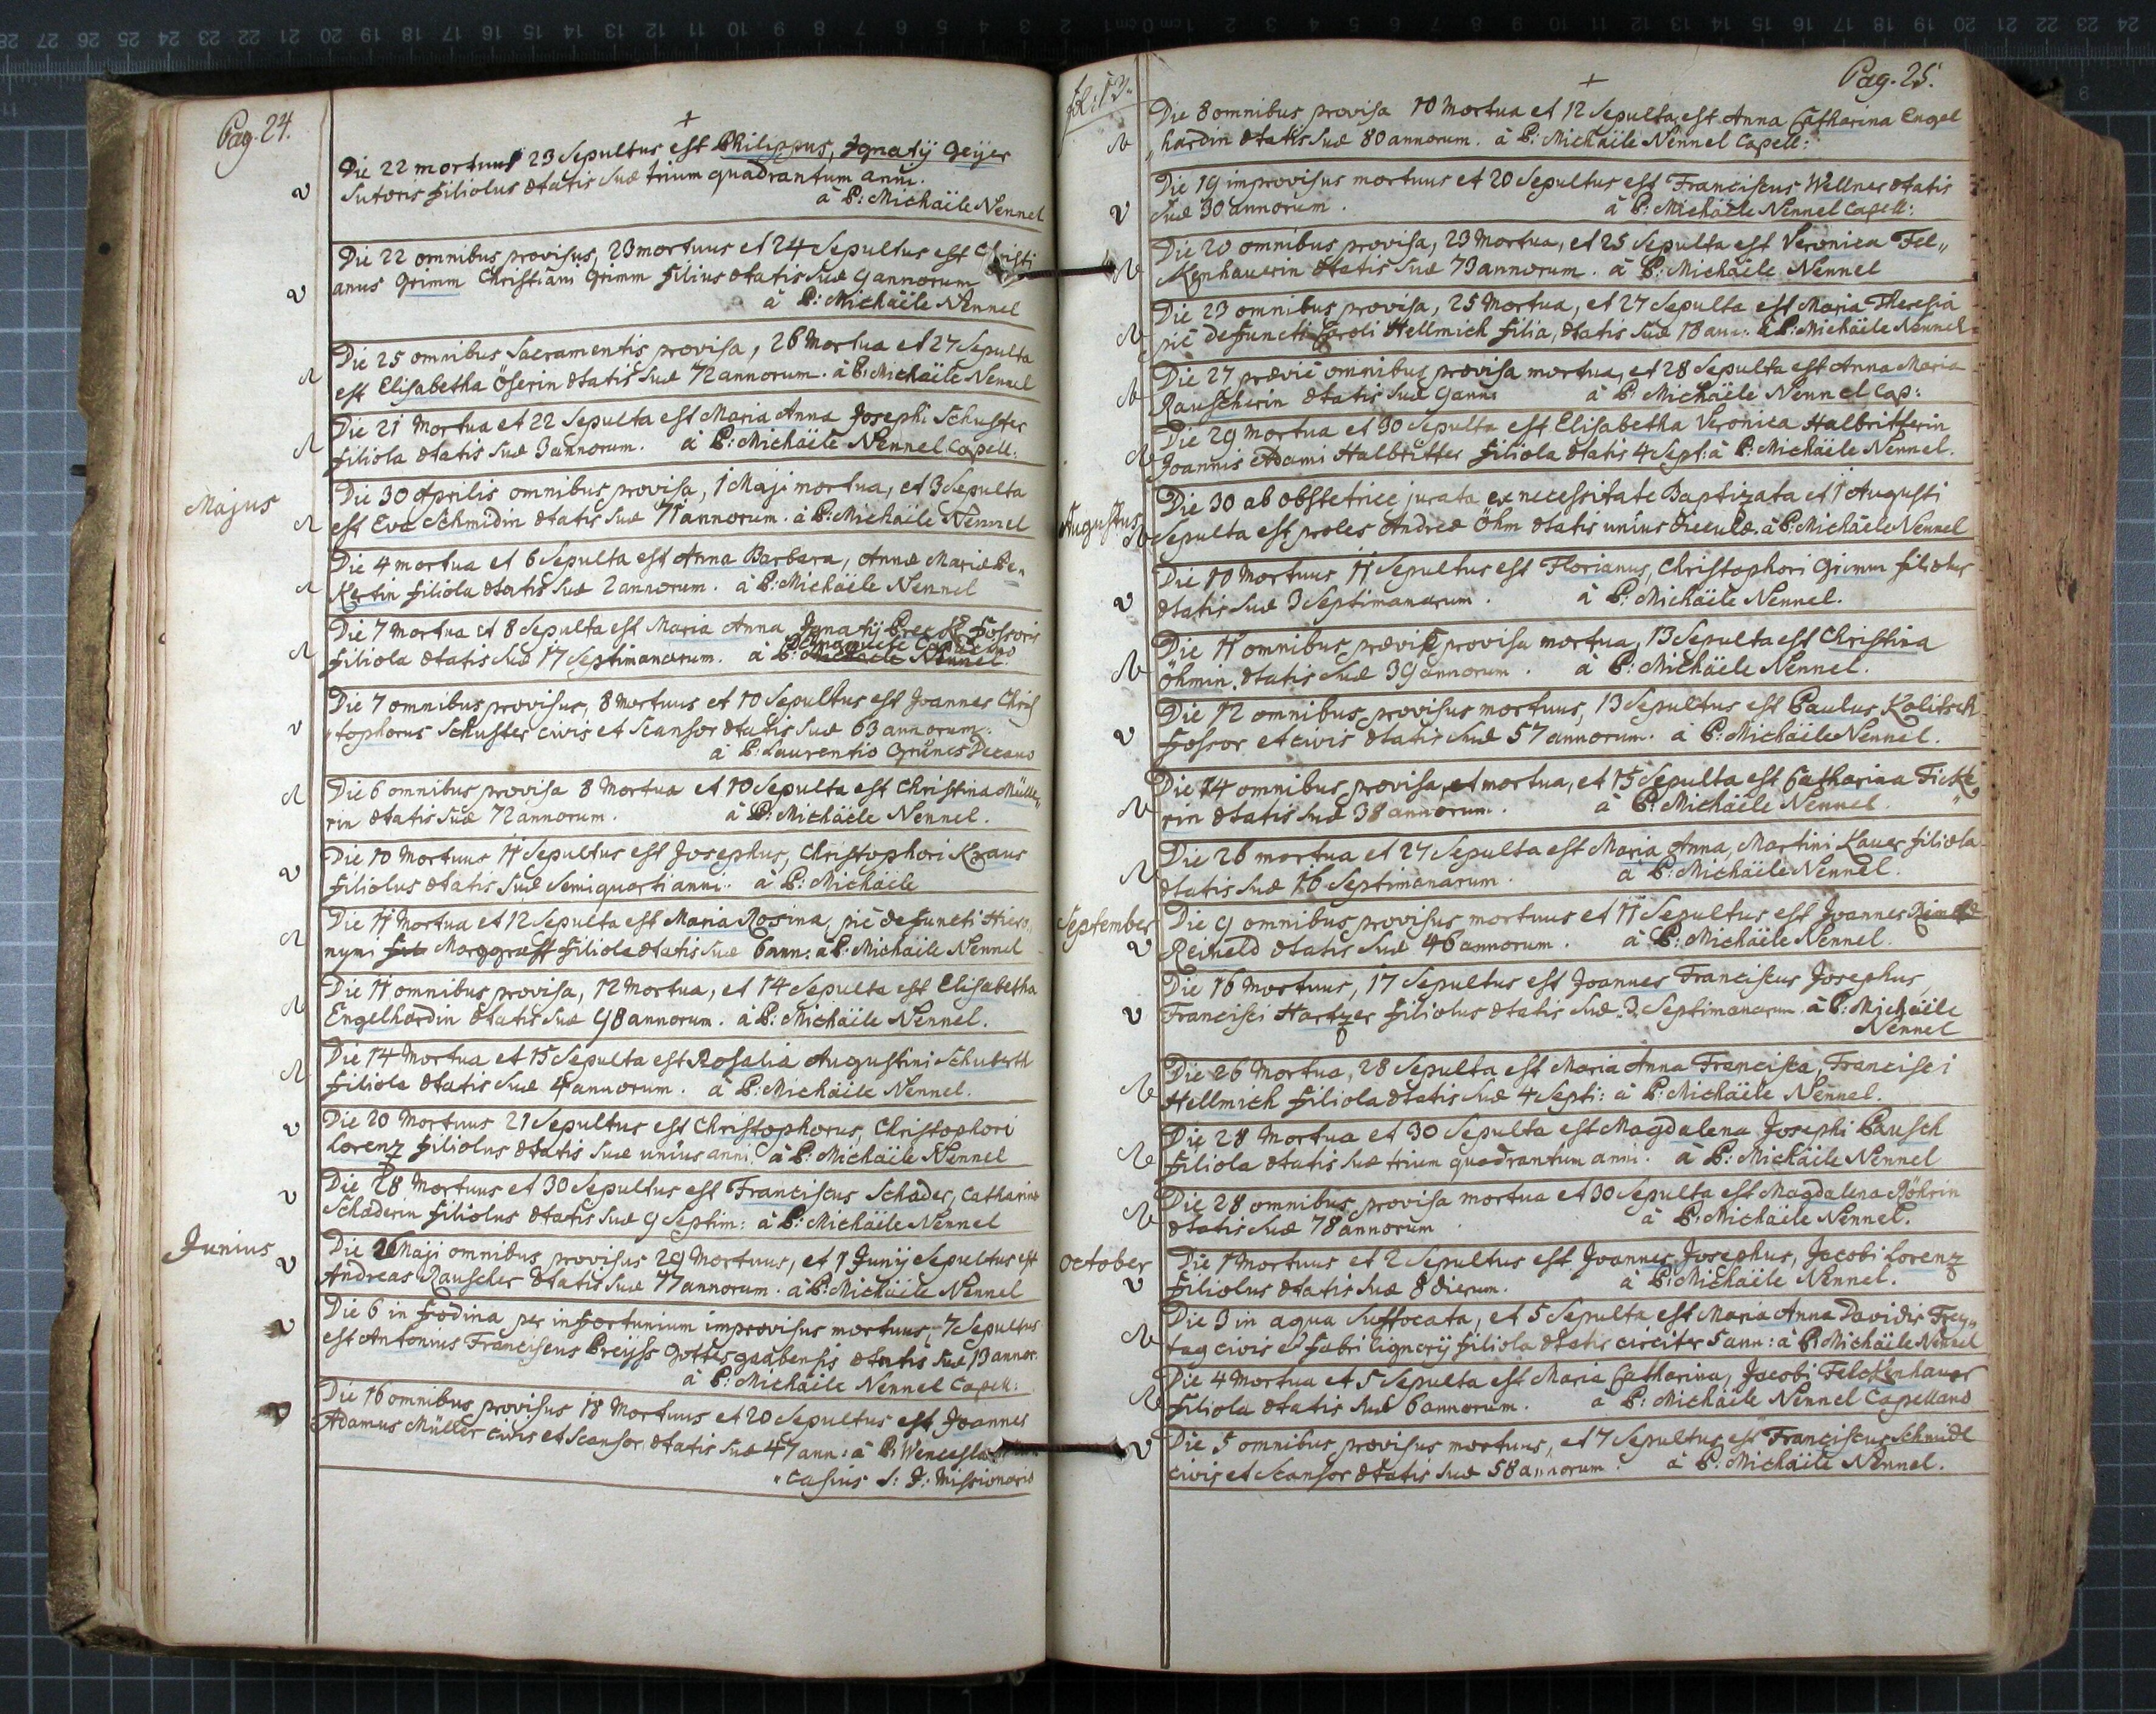 Pag. 24.
+
Die 22 mortuus 23 Sepultus est Philippus, Ignatij Geijer
Sutoris filiolus ætatis suæ trium quadrantum anni.
à P: Michäile Nennel
Die 22 omnibus provisus, 23 mortuus et 24 Sepultus est Christi
anus Grimm Christiani Grimm filius ætatis suæ 9 annorum
à P: Michäile Nennel
Die 25 omnibus Sacramentis provisa, 26 Mortua et 27 Sepulta
est Elisabetha Öserin ætatis suæ 72 annorum. à P: Michäile Nennel
Die 21 Mortua et 22 Sepulta est Maria Anna Josephi Schuster
filiola ætatis suæ 3 annorum. à P: Michäile Nennel Capell:
Majus
Die 30 Aprilis omnibus provisa, 1 Maji mortua, et 3 Sepulta
est Eva Schmidin ætatis suæ 71 annorum. à P: Michäile Nennel
Die 4 mortua et 6 Sepulta est Anna Barbara, Annæ Mariæ Be„
Kertin filiola ætatis suæ 2 annorum. à P: Michäile Nennel
Die 7 Mortua et 8 Sepulta est Maria Anna Ignatij Fossoris
filiola ætatis suæ 17 Septimanarum. à P: Michaele Nennel
Die 7 omnibus provisus, 8 Mortuus et 10 Sepultus est Joannes Chris
„tophorus Schuster civis et Scansor ætatis suæ 63 annorum.
à P: Laurentio Grünes Decano
Die 6 omnibus provisa 8 Mortua et 10 Sepulta est Christina Mülle„
rin ætatis suæ 72 annorum. à P: Michäile Nennel.
Die 10 Mortuus 11 Sepultus est Josephus, Christophori Kraus
filiolus ætatis suæ semiquarti anni. à P: Michäile
Die 11 Mortua et 12 Sepulta est Maria Rosina, piè defuncti Hiero„
nymi Marggraff filiola ætatis suæ 6 ann: à P: Michäile Nennel
Die 11 omnibus provisa, 12 Mortua, et 14 Sepulta est Elisabetha
Engelhardin ætatis suæ 98 annorum. à P: Michäile Nennel.
Die 14 Mortua et 15 Sepulta est Rosalia Augustini Schuberth
filiola ætatis suæ 4 annorum. à P: Michäile Nennel.
Die 20 Mortuus 21 Sepultus est Christophorus, Christophori
Lorenz filiolus ætatis suæ unius anni. à P: Michäile Nennel
Die 28 Mortuus et 30 Sepultus est Franciscus Schader, Catharinæ
Schaderin filiolus ætatis suæ 9 Septim: à P: Michäile Nennel
Junius
Die 26 Maji omnibus provisus 29 Mortuus, et 1 Junij Sepultus est
Andreas Rauscher ætatis suæ 77 annorum. à P: Michäile Nennel
Die 6 in fodina per infortunium improvisus mortuus, 7 Sepultus
est Antonius Franciscus Preijss Gottesgaabensis ætatis suæ 13 annor:
à P: Michäile Nennel Capell:
Die 16 omnibus provisus 18 Mortuus et 20 Sepultus est Joannes
Adamus Müller civis et Scansor ætatis suæ 47 ann: à P: Wenceslao
„casius S: J: Missionario
fol: 13.
+
Pag. 25.
Die 8 omnibus provisa 10 Mortua et 12 Sepulta est Anna Catharina Engel
„hardin ætatis suæ 80 annorum. à P: Michäile Nennel Capell:
Die 19 improvisus mortuus et 20 Sepultus est Franciscus Wellner ætatis
suæ 30 annorum. à P: Michäile Nennel Capell:
Die 20 omnibus provisa, 23 Mortua, et 25 Sepulta est Veronica Fel„
Kenhauerin ætatis suæ 73 annorum. à P: Michäile Nennel
Die 23 omnibus provisa, 25 Mortua, et 27 Sepulta est Maria Theresia
piè defuncti Caroli Hellmich filia, ætatis suæ 18 ann: à P: Michäile Nennel
Die 27 præviè omnibus provisa mortua, et 28 Sepulta est Anna Maria
Rauscherin ætatis suæ 9 anni à P: Michäile Nennel Cap:
Die 29 Mortua et 30 Sepulta est Elisabetha Veronica Halbritterin
Joannis Adami Halbritter filiola ætatis 4 Sept: à P: Michäile Nennel.
Augustus
Die 30 ab obstetrice jurata ex necessitate Baptizata et 1 Augusti
Sepulta est proles Andreæ Öhm ætatis unius dieculæ. à P: Michäile Nennel
Die 10 Mortuus 11 Sepultus est Florianus, Christophori Grimm filiolus
ætatis suæ 3 Septimanarum. à P: Michäile Nennel.
Die 11 omnibus præviè provisa mortua, 13 Sepulta est Christina
Öhmin ætatis suæ 39 annorum. à P: Michäile Nennel.
Die 12 omnibus provisus mortuus, 13 Sepultus est Paulus Kolitsch
fossor et civis ætatis suæ 57 annorum. à P: Michäile Nennel.
Die 14 omnibus provisa, et mortua, et 15 Sepulta est Catharina Ficke„
rin ætatis suæ 38 annorum. à P: Michäile Nennel.
Die 26 mortua et 27 Sepulta est Maria Anna, Martini Lauer filiola
ætatis suæ 16 Septimanarum. à P: Michäile Nennel.
September
Die 9 omnibus provisus mortuus et 11 Sepultus est Joannes
Reineld ætatis suæ 46 annorum. à P: Michäile Nennel.
Die 16 Mortuus, 17 Sepultus est Joannes Franciscus Josephus,
Francisci Hartzer filiolus ætatis suæ 3 Septimanarum. à P: Michäile
Nennel
Die 26 Mortua, 28 Sepulta est Maria Anna Francisca, Francisci
Hellmich filiola ætatis suæ 4 Septi: à P: Michäile Nennel.
Die 28 Mortua et 30 Sepulta est Magdalena Josephi Bausch
filiola ætatis suæ trium quadrantum anni. à P: Michäile Nennel
Die 28 omnibus provisa mortua et 30 Sepulta est Magdalena Röhrin
ætatis suæ 78 annorum. à P: Michäile Nennel.
October
Die 1 Mortuus et 2 Sepultus est Joannes Josephus, Jacobi Lorenz
filiolus ætatis suæ 8 dierum. à P: Michäile Nennel.
Die 3 in aqua suffocata, et 5 Sepulta est Maria Anna Davidis Frey„
tag civis et fabri lignarij filiola ætatis circiter 5 ann: à P: Michäile Nennel
Die 4 Mortua et 5 Sepulta est Maria Catharina, Jacobi Felckenhauer
filiola ætatis suæ 6 annorum. à P: Michäile Nennel Capellano
Die 5 omnibus provisus mortuus, et 7 Sepultus est Franciscus Schmidl
civis et Scansor ætatis suæ 58 annorum. à P: Michäile Nennel.